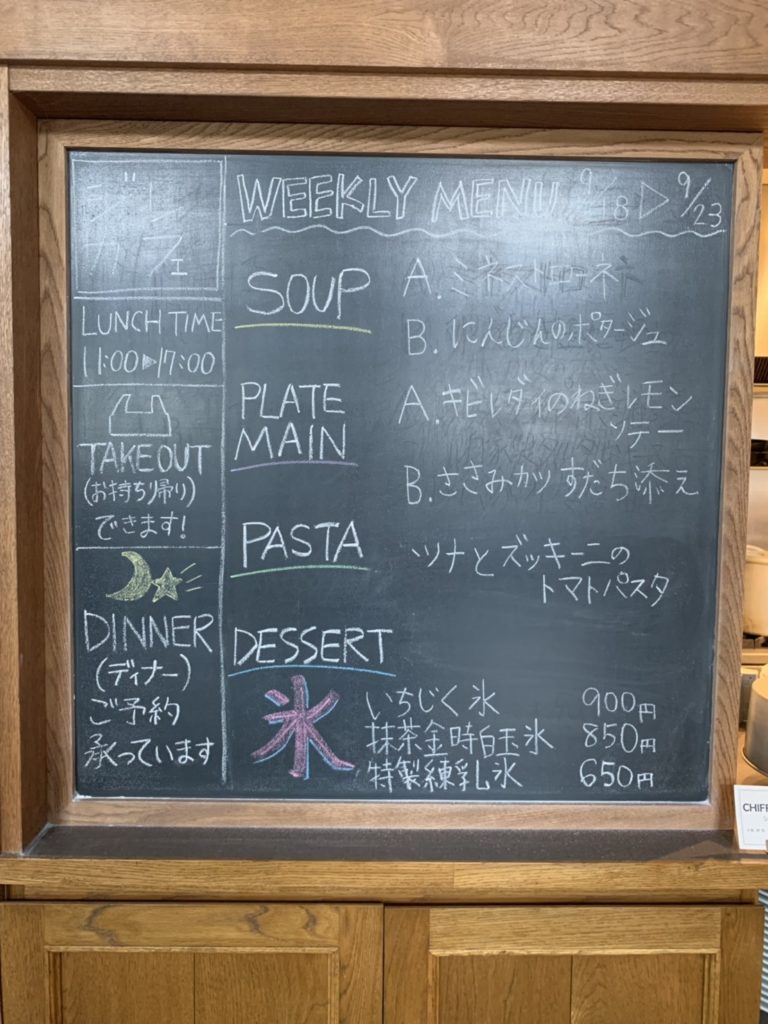 ジレ
カフェ
LUNCH TIME
11:00▶17:00
TAKEOUT
(お持ち帰り)
できます!
DINNER
(ディナー)
ご予約
承っています
WEEKLY MENU 9/18 ▷ 9/23
SOUP
A. ミネストローネ
B. にんじんのポタージュ
PLATE
MAIN
A. キビレダイのねぎレモン
ソテー
B. ささみカツ すだち添え
PASTA
ツナとズッキーニの
トマトパスタ
DESSERT
氷
いちじく氷 900円
抹茶金時白玉氷 850円
特製練乳氷 650円
CHIFF